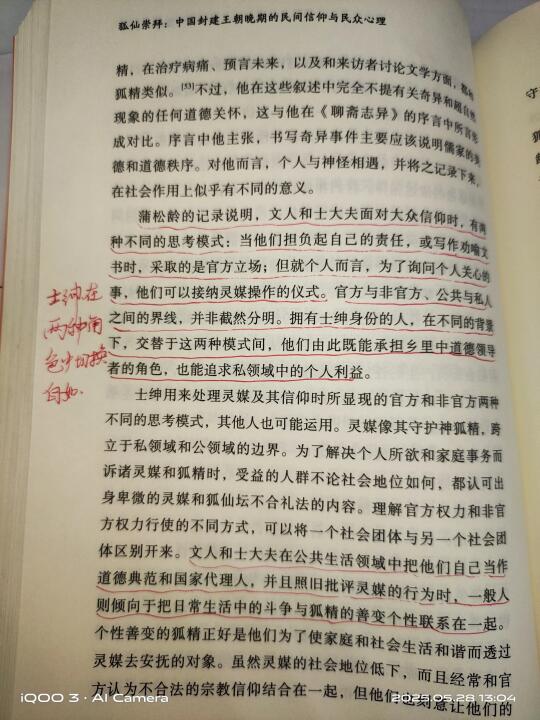 狐仙崇拜：中国封建王朝晚期的民间信仰与民众心理
精，在治疗病痛、预言未来，以及和来访者讨论文学方面，都和
狐精类似。[53]不过，他在这些叙述中完全不提有关奇异和超自然
现象的任何道德关怀，这与他在《聊斋志异》的序言中所言形
成对比。序言中他主张，书写奇异事件主要应该说明儒家的美
德和道德秩序。对他而言，个人与神怪相遇，并将之记录下来，
在社会作用上似乎有不同的意义。
蒲松龄的记录说明，文人和士大夫面对大众信仰时，有两
种不同的思考模式：当他们担负起自己的责任，或写作劝喻文
书时，采取的是官方立场；但就个人而言，为了询问个人关心的
事，他们可以接纳灵媒操作的仪式。官方与非官方、公共与私人
之间的界线，并非截然分明。拥有士绅身份的人，在不同的背景
下，交替于这两种模式间，他们由此既能承担乡里中道德领导
者的角色，也能追求私领域中的个人利益。
士绅用来处理灵媒及其信仰时所显现的官方和非官方两种
不同的思考模式，其他人也可能运用。灵媒像其守护神狐精，跨
立于私领域和公领域的边界。为了解决个人所欲和家庭事务而
诉诸灵媒和狐精时，受益的人群不论社会地位如何，都认可出
身卑微的灵媒和狐仙坛不合礼法的内容。理解官方权力和非官
方权力行使的不同方式，可以将一个社会团体与另一个社会团
体区别开来。文人和士大夫在公共生活领域中把他们自己当作
道德典范和国家代理人，并且照旧批评灵媒的行为时，一般人
则倾向于把日常生活中的斗争与狐精的善变个性联系在一起。
个性善变的狐精正好是他们为了使家庭和社会生活和谐而透过
灵媒去安抚的对象。虽然灵媒的社会地位低下，而且经常和官
方认为不合法的宗教信仰结合在一起，但他们也刻意让他们的
士绅在
两种角
色中切换
自如.
守
iQOO 3 · AI Camera
2025.05.28 13:04